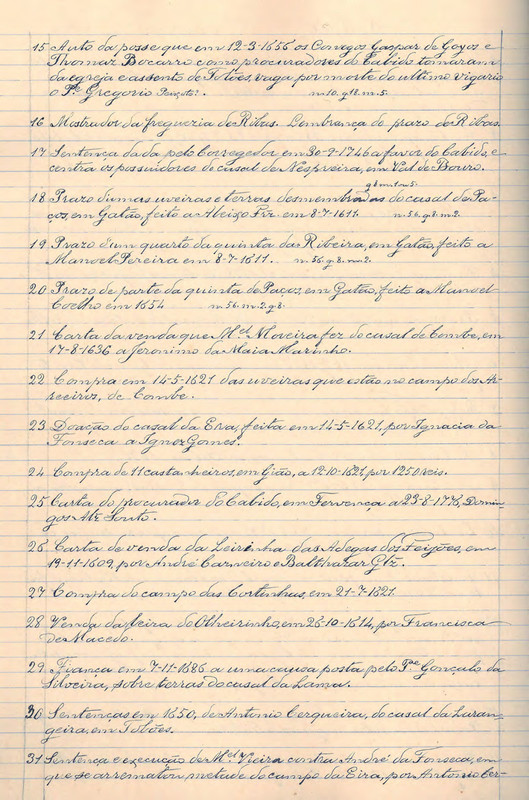 15 Auto da posse que em 12-3-1656 os Conegos Gaspar de Goyos e
Thomaz Bocarro como procuradores do Cabido tomaram
da egreja e assento de Tolões, vaga por morte do ultimo vigario
o Pe Gregorio Peixoto? m. 10. g. 18. m. 5.
16 Mostrador da freguezia de Ribas. Lembrança do prazo de Ribas.
17 Sentença dada pelo Corregedor, em 30-9-1746 a favor do Cabido, e
contra os possuidores do casal de Nespreira, em Val de Bouro.
18 Prazo d'umas uveiras e terras desmembradas do casal de Pa-
ços, em Gatão, feito a Aleixo Frz em 8-7-1611. n. 56. g. 8. m. 2.
19 Prazo d'um quarto da quinta da Ribeira, em Gatão, feito a
Manoel Pereira em 8-7-1611. n. 56. g. 8. m. 2.
20 Prazo de parte da quinta de Paços, em Gatão, feito a Manoel
Coelho em 1654 n. 56. m. 2. g. 8.
21 Carta da venda que Mel Moreira fez do casal de Combe, em
17-8-1636 a Jeronimo da Maia Marinho.
22 Compra em 14-5-1621 das uveiras que estão no campo dos Ar-
seeiros, de Combe.
23 Doação do casal da Eva, feita em 14-5-1621, por Ignacia da
Fonseca a Ignez Gomes.
24 Compra de 11 castanheiros, em Gião, a 12-10-1621, por 1250 reis.
25 Carta do procurador do Cabido, em Fervença a 23-8-1776, Domin-
gos Alz Souto.
26 Carta de venda da Leirinha das Adegas dos Feijões, em
19-11-1609, por André Carneiro e Balthazar Glz.
27 Compra do campo das Cortinhas, em 21-7-1621.
28 Venda da leira do Olheirinho, em 26-10-1614, por Francisca
de Macedo.
29 Fiança em 7-11-1686 a uma causa posta pelo Pe Gonçalo da
Silveira, sobre terras do casal da Lama.
30 Sentenças em 1650, de Antonio Cerqueira, do casal da Laran-
geira, em Tolões.
31 Sentença e execução de Mel Vieira contra André da Fonseca, em
que se arrematou metade do campo da Eira, por Antonio Cer-